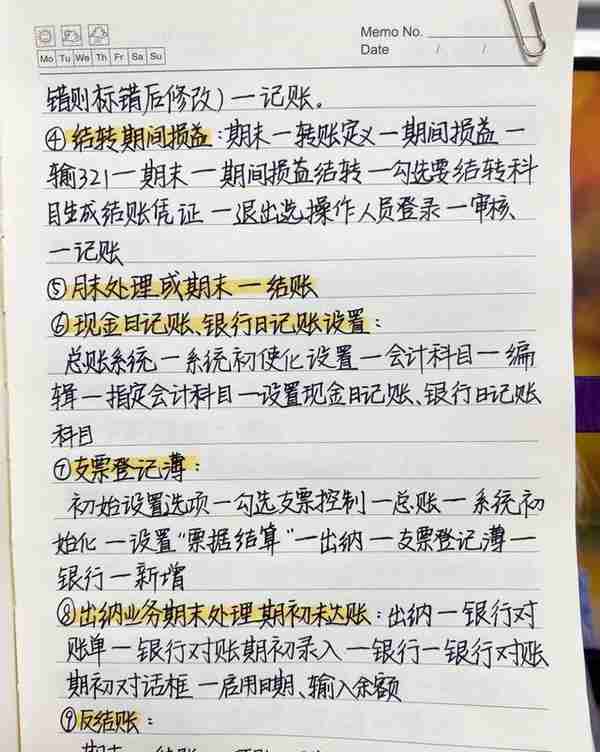 Memo No.
Mo Tu We Th Fr Sa Su
Date / /
错则标错后修改)一记账。
④结转期间损益:期末一转账定义一期间损益一
输321一期末一期间损益结转一勾选要结转科
目生成结账凭证一退出选操作人员登录一审核
一记账
⑤月末处理或期末一结账
⑥现金日记账、银行日记账设置:
总账系统一系统初使化设置一会计科目一编
辑一指定会计科目一设置现金日记账、银行日记账
科目
⑦支票登记薄:
初始设置选项一勾选支票控制一总账一系统初
始化一设置“票据结算”一出纳一支票登记薄一
银行一新增
⑧出纳业务期末处理期初未达账:出纳一银行对
账单一银行对账期初录入一银行一银行对账
期初对话框一启用日期、输入余额
⑨反结账: